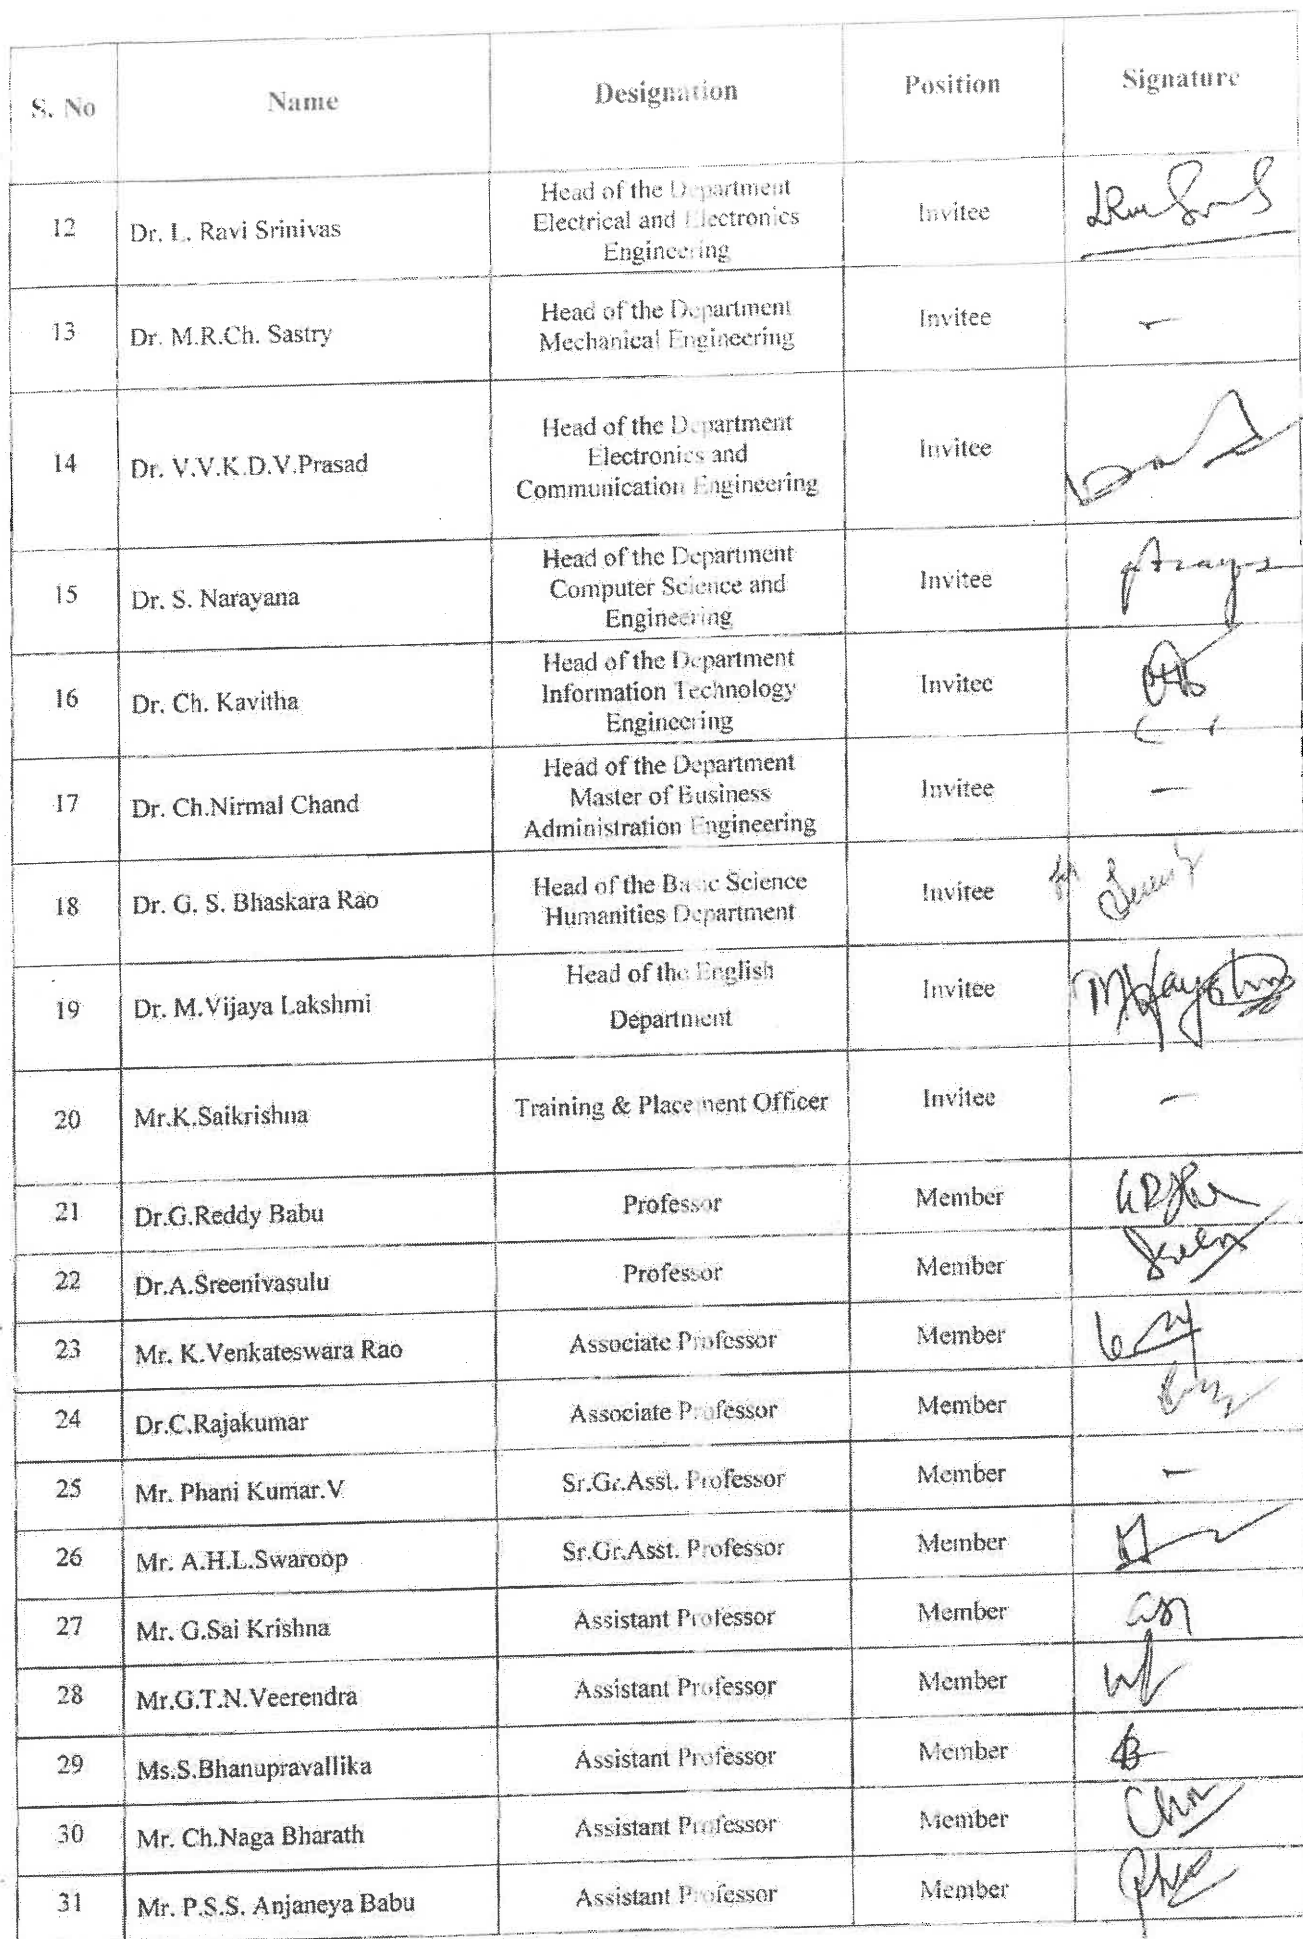 S. No Name Designation Position Signature
12 Dr. L. Ravi Srinivas Head of the Department Invitee
Electrical and Electronics
Engineering
13 Dr. M.R.Ch. Sastry Head of the Department Invitee –
Mechanical Engineering
14 Dr. V.V.K.D.V.Prasad Head of the Department Invitee
Electronics and
Communication Engineering
15 Dr. S. Narayana Head of the Department Invitee
Computer Science and
Engineering
16 Dr. Ch. Kavitha Head of the Department Invitee
Information Technology
Engineering
17 Dr. Ch.Nirmal Chand Head of the Department Invitee –
Master of Business
Administration Engineering
18 Dr. G. S. Bhaskara Rao Head of the Basic Science Invitee
Humanities Department
19 Dr. M.Vijaya Lakshmi Head of the English Invitee
Department
20 Mr.K.Saikrishna Training & Placement Officer Invitee –
21 Dr.G.Reddy Babu Professor Member
22 Dr.A.Sreenivasulu Professor Member
23 Mr. K.Venkateswara Rao Associate Professor Member
24 Dr.C.Rajakumar Associate Professor Member
25 Mr. Phani Kumar.V Sr.Gr.Asst. Professor Member –
26 Mr. A.H.L.Swaroop Sr.Gr.Asst. Professor Member
27 Mr. G.Sai Krishna Assistant Professor Member
28 Mr.G.T.N.Veerendra Assistant Professor Member
29 Ms.S.Bhanupravallika Assistant Professor Member
30 Mr. Ch.Naga Bharath Assistant Professor Member
31 Mr. P.S.S. Anjaneya Babu Assistant Professor Member